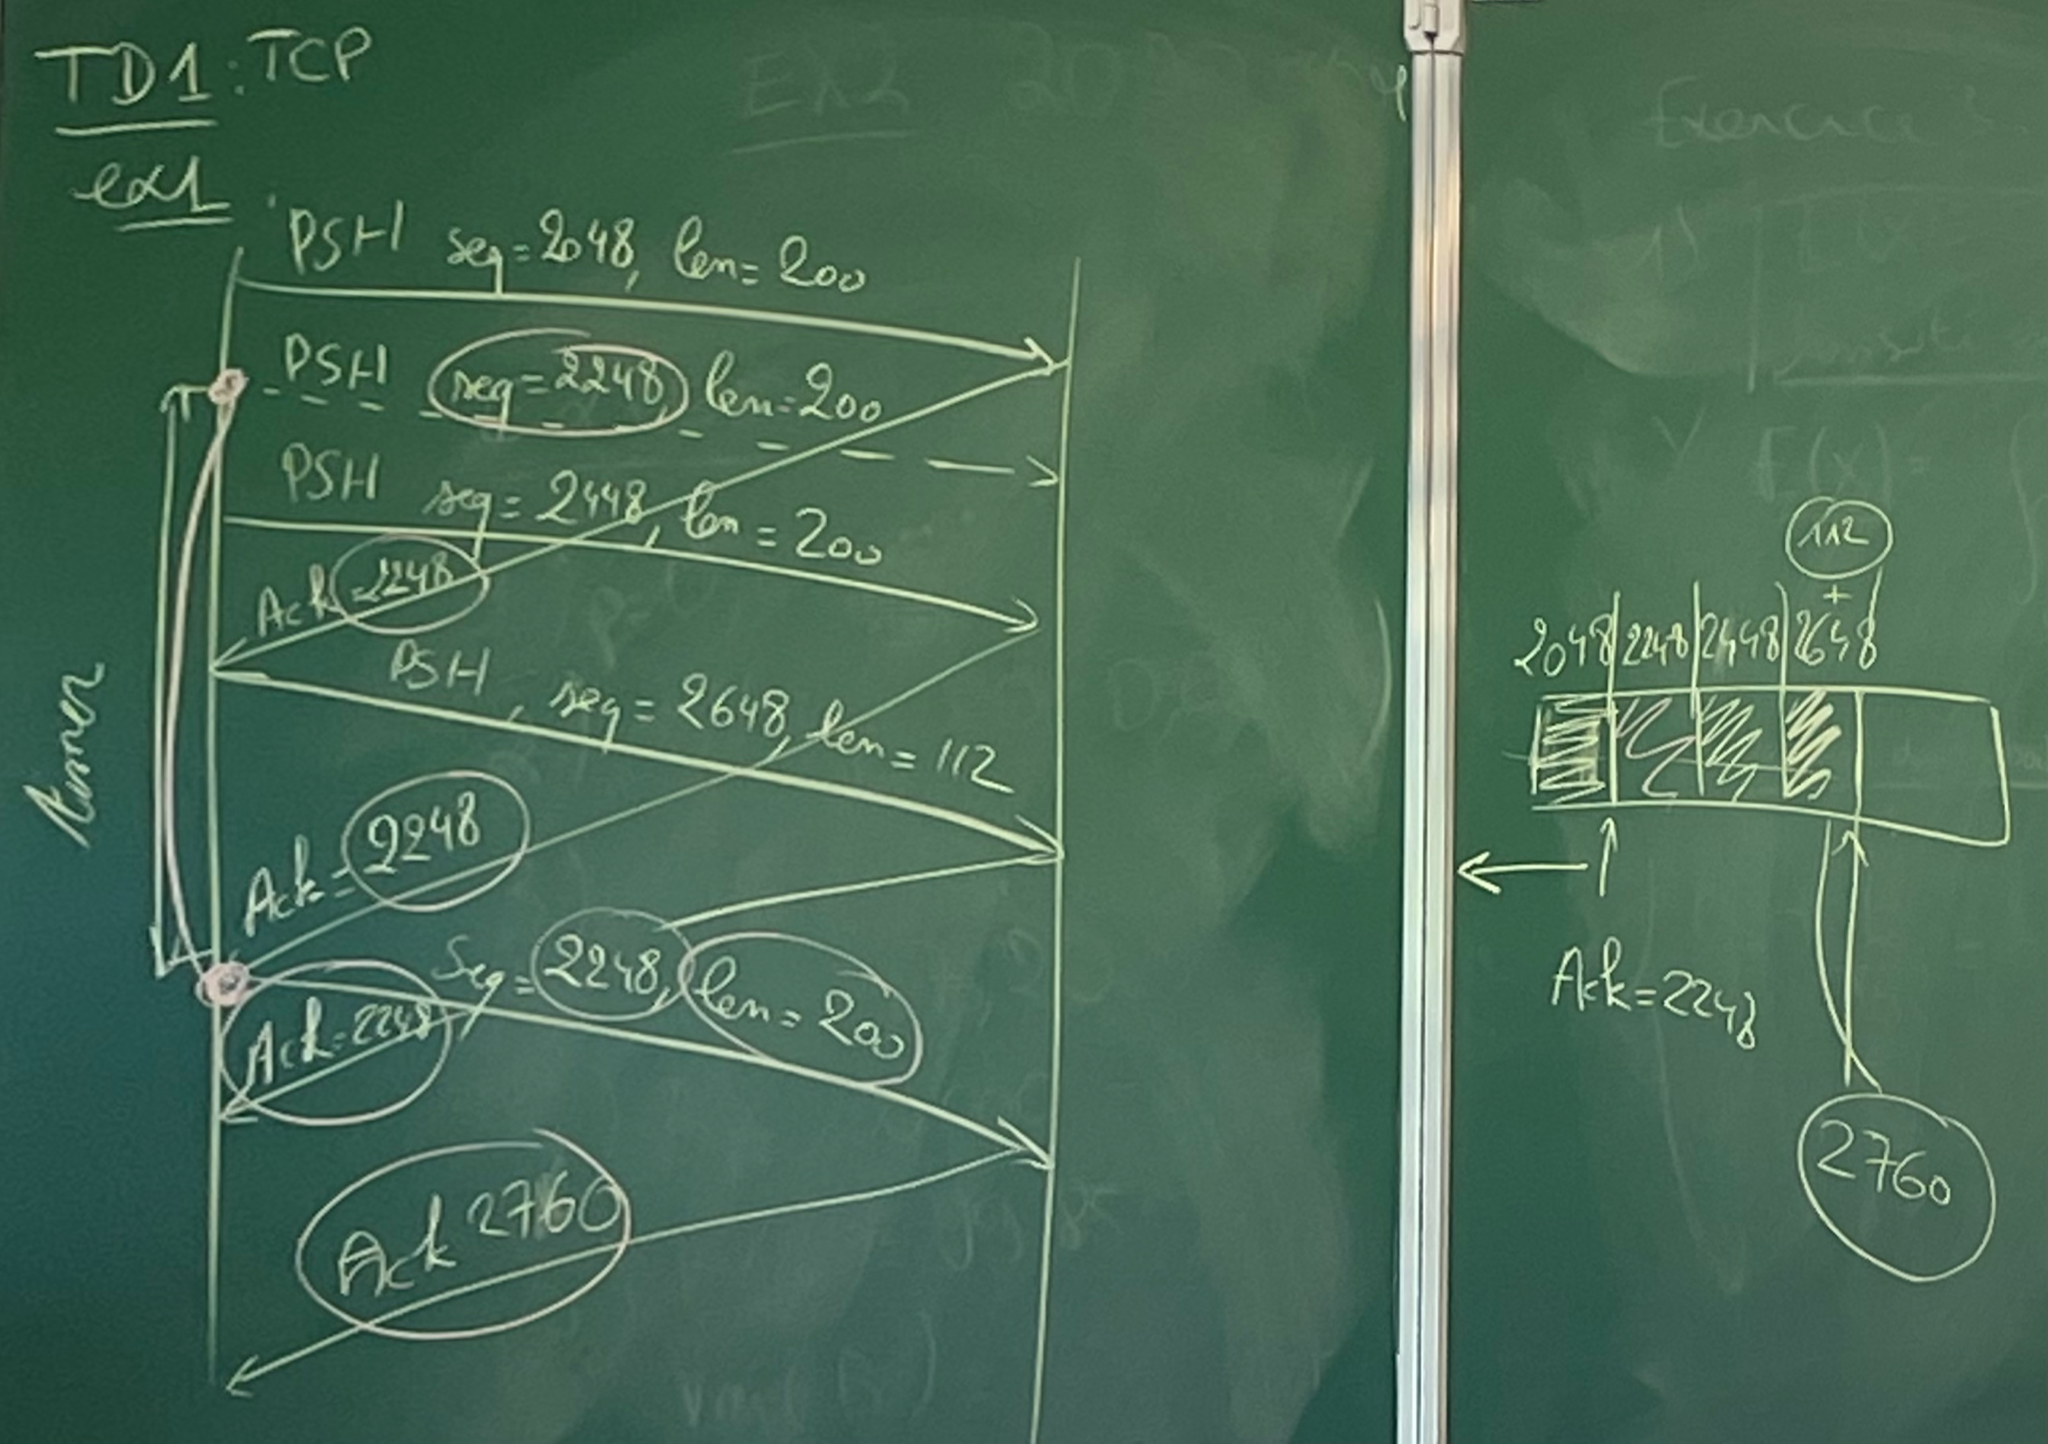 TD1: TCP
ex1
PSH seq=2048, len=200
PSH seq=2248, len=200
PSH seq=2448, len=200
Ack=2248
PSH, seq=2648, len=112
timer
Ack=2248
Seq=2248, len=200
Ack=2248
Ack 2760
Ex2
Exercice
1)
F(x)=
112
+
2048 2248 2448 2648
Ack=2248
2760